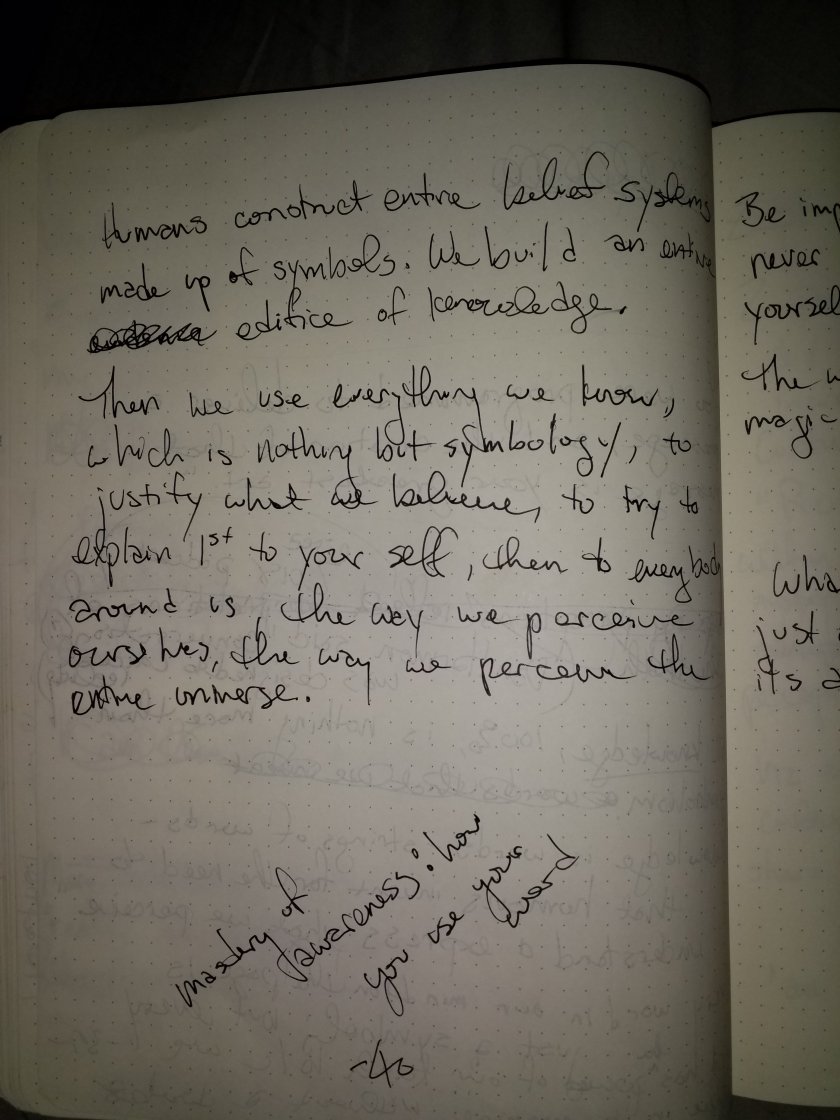 Humans construct entire belief systems
made up of symbols. We build an entire
edifice of kenowledge.
Then we use everything we know,
which is nothing but symbology, to
justify what we believe, to try to
explain 1st to your self, then to everybody
around us, the way we perceive
ourselves, the way we perceive the
entire universe.
mastery of
awareness: how
you use your
word
-40
Be
never
The
magic
just
its